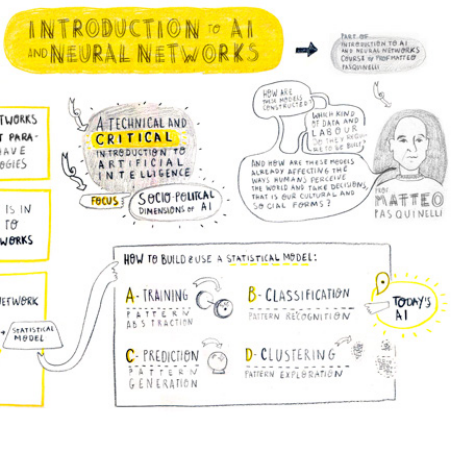 INTRODUCTION TO AI
AND NEURAL NETWORKS
PART OF
INTRODUCTION TO AI
AND NEURAL NETWORKS
COURSE BY PROF MATTEO
PASQUINELLI
A TECHNICAL AND
CRITICAL
INTRODUCTION TO
ARTIFICIAL
INTELLIGENCE
FOCUS
SOCIO-POLITCAL
DIMENSIONS OF AI
HOW ARE
THESE MODELS
CONSTRUCTED?
WHICH KIND
OF DATA AND
LABOUR
DO THEY REQUI-
RE TO BE BUILT?
AND HOW ARE THESE MODELS
ALREADY AFFECTING THE
WAYS HUMANS PERCEIVE
THE WORLD AND TAKE DECISIONS,
THAT IS OUR CULTURAL AND
SOCIAL FORMS?
PROF.
MATTEO
PASQUINELLI
IS IN
TO
STATISTICAL
MODEL
HOW TO BUILD & USE A STATISTICAL MODEL:
A - TRAINING
PATTERN
ABSTRACTION
B - CLASSIFICATION
PATTERN RECOGNITION
C - PREDICTION
PATTERN
GENERATION
D - CLUSTERING
PATTERN EXPLORATION
TODAY'S
AI